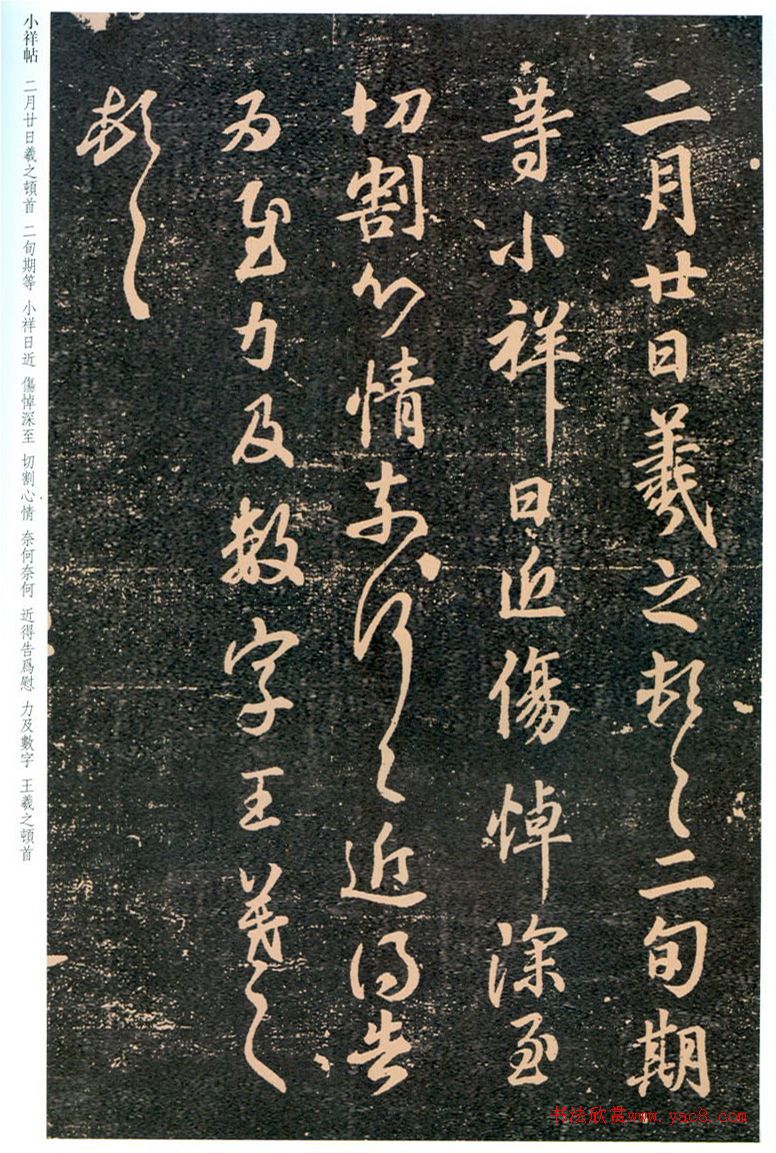 二月廿日羲之頓首二旬期
等小祥日近傷悼深至
切割心情奈何奈何近得告
為慰力及數字王羲之
頓首
小祥帖 二月廿日羲之頓首 二旬期等 小祥日近 傷悼深至 切割心情 奈何奈何 近得告爲慰 力及數字 王羲之頓首
书法欣赏www.yac8.com